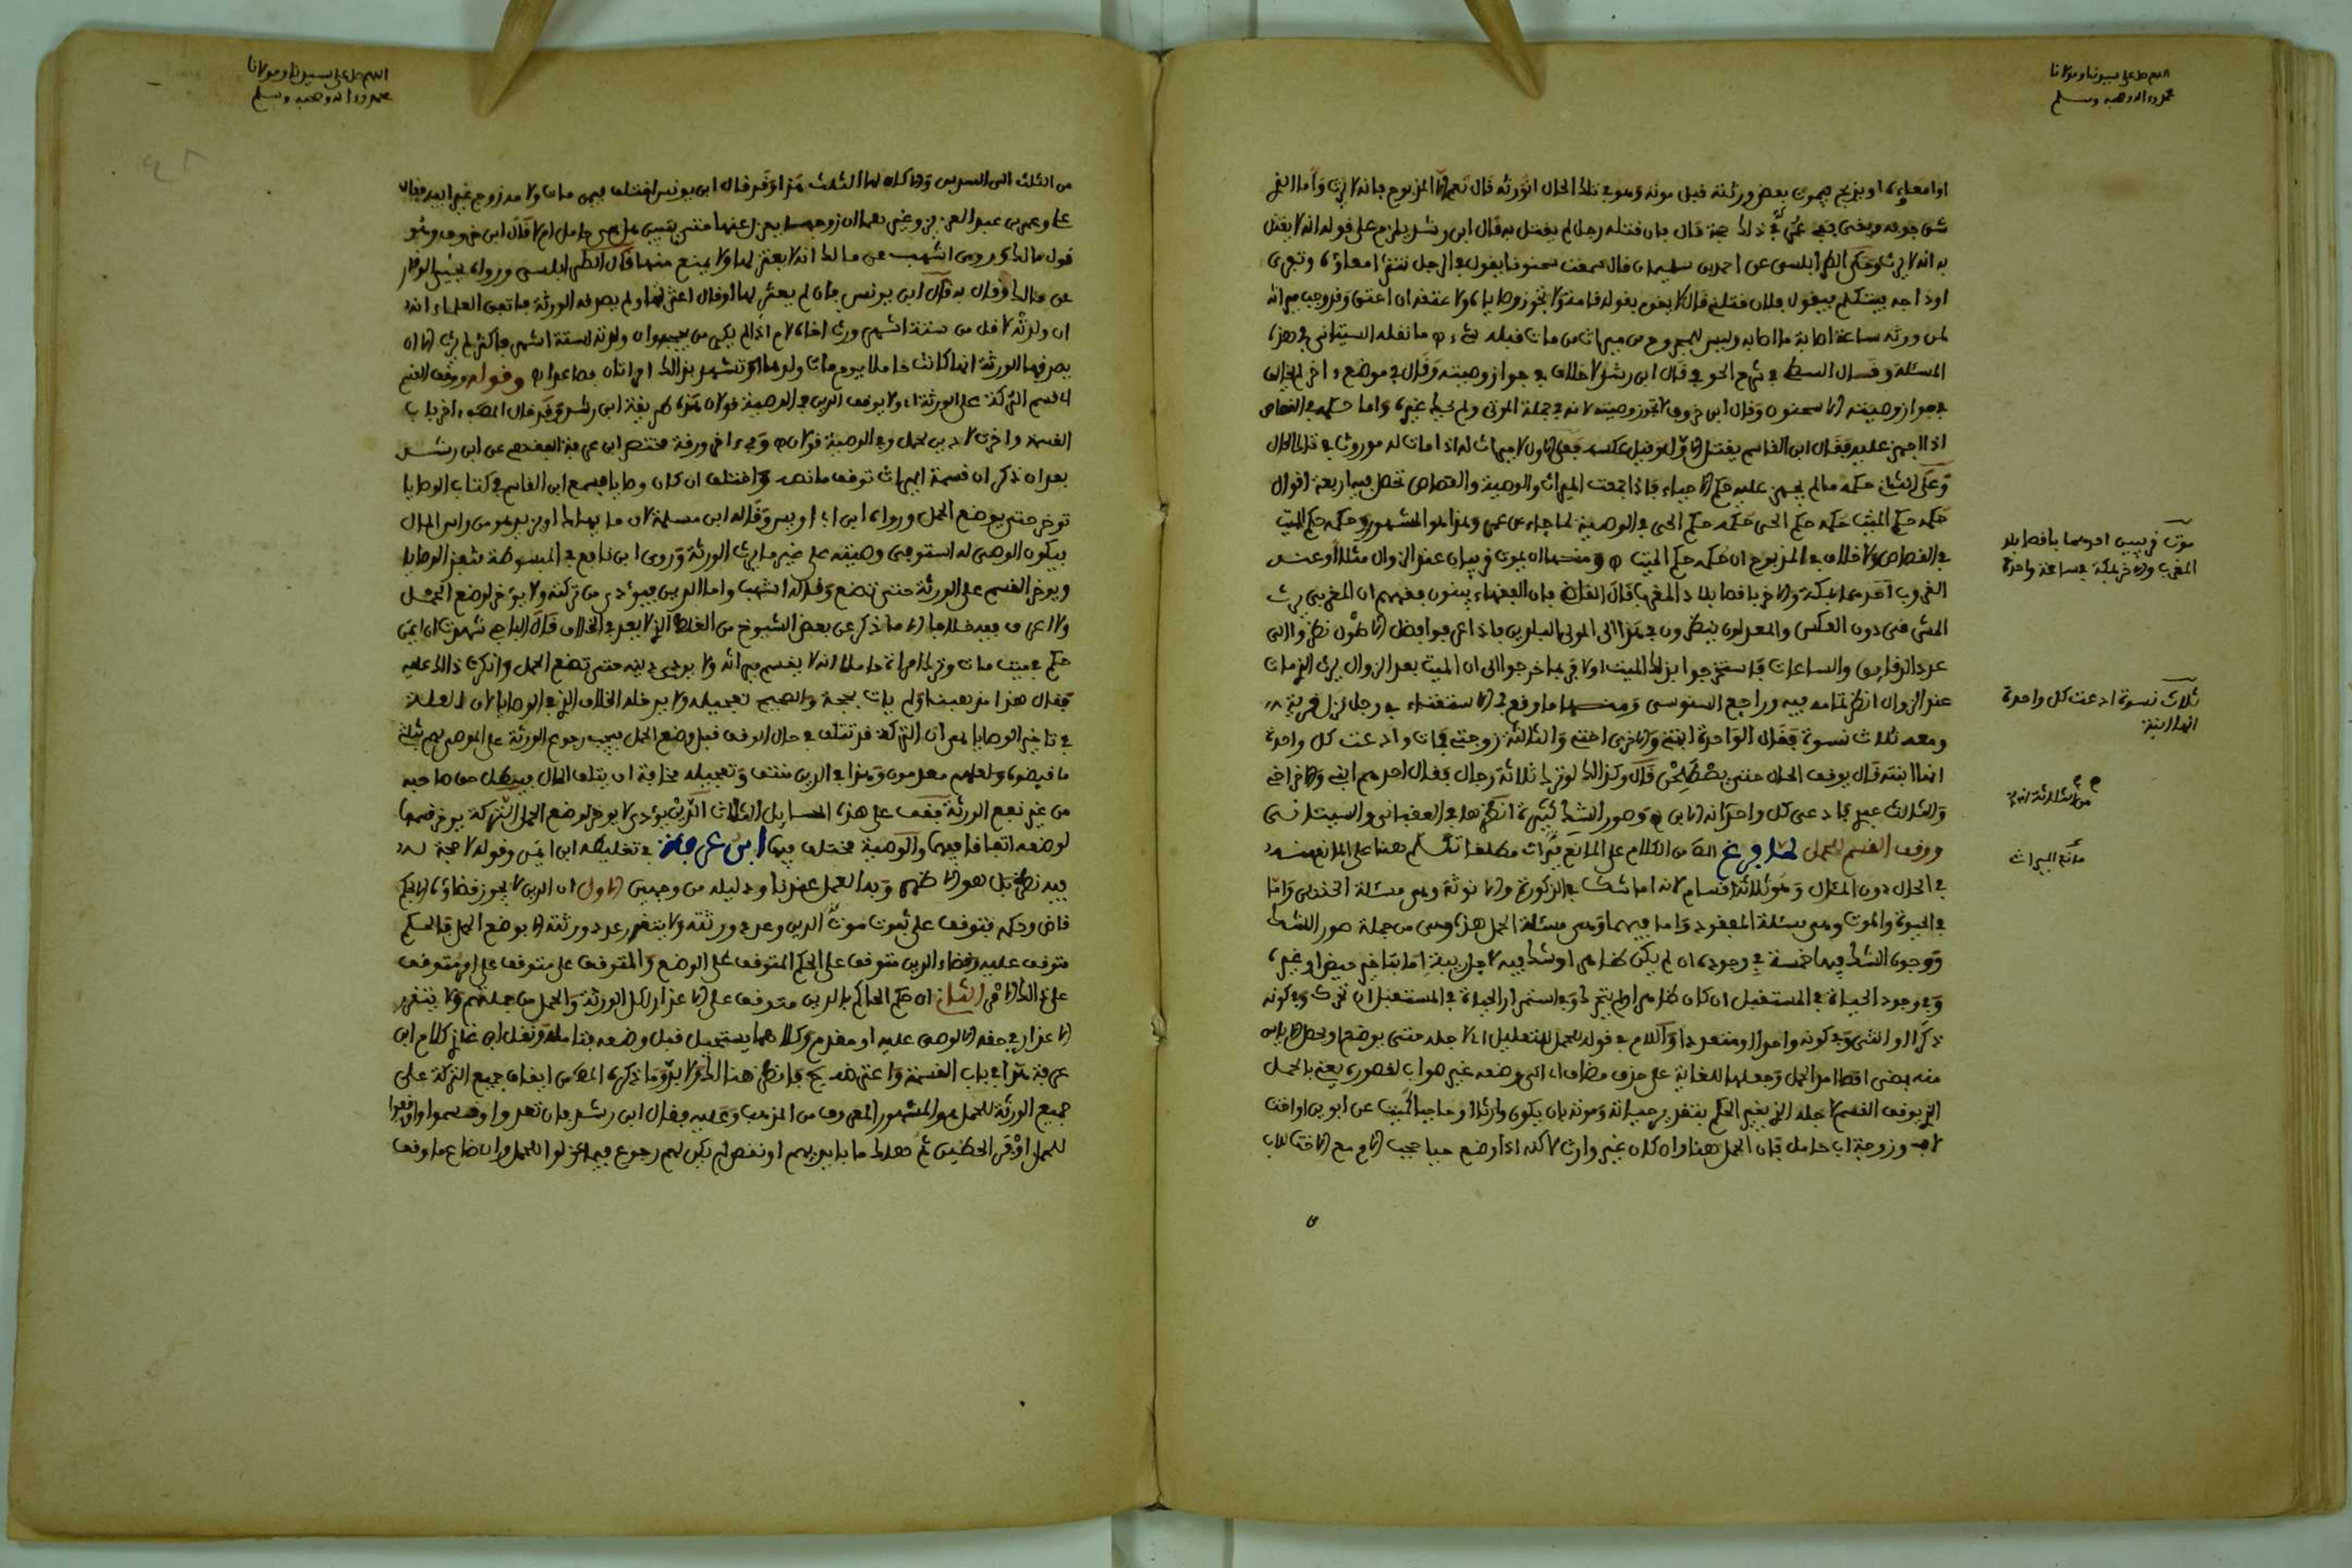 اللهم صل على سيدنا ومولانا
محمد وءاله وصحبه وسلم
او امعاءه او يذبح فيموت بعض ورثته قبل موته وهو في تلك الحال اتورثه قال نعم الا المذبوح فانه لا يرث واما الذي
شق جوفه وبقي
به انه لا يرث وحكى الطرابلسي عن احمد بن سليمان قال سمعت سحنونا يقول في الرجل تنثر امعاؤه وتجرى
اوداجه فيتكلم فيقول فلان قتلني قال لا يقوم بقوله قسامة ولا تجوز وصاياه ولا عتقه ان اعتق وقد وجب ميراثه
لمن ورثه ساعة اصابه ما اصابه وليس للمجروح من ميراث من مات قبله شيء ما نقله السيتاني في هذه
المسئلة وقال البسط في شرح الحوفي قال ابن رشد لا خلاف في جواز وصيته وقال في موضع ءاخر لم يخالف
في جواز وصيته الا سحنون وقال ابن خروف لا تجوز وصيته لانه في جملة الموتى ولم يحك غيره واما حكمه في القصاص
اذا اجهز عليه فقال ابن القاسم يقتل الاول وقيل عكسه فعلى الاول لا ميراث له اذا مات له موروث في تلك الحال
وعلى الثاني حكمه ما لم يجهز عليه حكم الاحياء فاذا جمعت الميراث والوصية والقصاص تحصل فيه اربعة اقوال
حكمه حكم الميت حكمه حكم الحي حكمه حكم الحي في الوصية لما جاء عن عمر وهذا هو المشهور وحكمه حكم الميت
في القصاص ولا خلاف في المذبوح ان حكمه حكم الميت ومنها ان يموت قريبان عند الزوال مثلا او عند
الغروب احدهما بمكة والاخر باقصى بلاد المغرب قال القرافي فان الفقهاء يفتون بفهمهم ان المغربي يرث
المشرقي دون العكس والمعدلون ينظرون في هذا الى الموتى البلدين فاذا عرفوا فضل الاطوال نظروا الى
عدد الدقايق والساعات فاستخرجوا بذلك الميت اولا وربما خرجوا الى ان الميت بعد الزوال يرث الذي مات
عند الزوال انظر تمامه فيه وراجع السنوسي ومنها ما وقع في الاستغناء في رجل نزل قرية
ومعه ثلاث نسوة فقال الواحدة ابنتي والاخرى اختي والثالثة زوجتي فمات وادعت كل واحدة
انها ابنته قال يوقف الحال حتى يصطلحن قال وكذلك لو ترك ثلاثة رجال فقال احدهم ابني والاخر اخي
والثالث عبدي فادعى كل واحد انه الابن وصور الشك كثيرة انظرها في العقباني والسيتاني
ووقف القسم للحمل لما فرغ الناظم من الكلام على المانع ميراث مطلقا تكلم هنا على المانع منه
في الحال دون المئال وهو ثلاثة اقسام لانه اما شك في الذكورة والانوثة وهي مسئلة الخنثى واما
في الحيوة والموت وهي مسئلة المفقود واما فيهما وهي مسئلة الحمل هذه وهي من جملة صور الشك
ووجوه الشك فيها خمسة في وجوده ان لم يكن ظاهرا وشك فيه لاجل ريبة اما بتاخير حيض او غيره
وفي وجود الحياة في المستقبل ان كان ظاهرا ولم يتحرك وفي استمرار الحياة في المستقبل ان تحرك وفي كونه
ذكرا او انثى وفي كونه واحدا او متعددا واللام في قوله للحمل للتعليل اي لاجله حتى يوضع او يحصل الاياس
منه بمضي اقصى امد الحمل وجعلها للغاية على حذف مضاف اي الى وضعه غير صواب لقصوره يعني بالحمل
الذي يوقف القسم لاجله الذي يغير الحكم بتقدير حياته وموته بان يكون وارثا او حاجبا كميت عن ابوين واخت
لاب وزوجة اب حامل فان الحمل هنا وان كان غير وارث لاكنه اذا وضع حيا حجب الام مع الاخت للاب
موت قريبين احدهما باقصى بلاد
المغرب والاخر بمكة في ساعة واحدة
ثلاث نسوة ادعت كل واحدة
انها الابنة
مانع الميراث
اللهم صل على سيدنا ومولانا
محمد وءاله وصحبه وسلم
من الثلث الى السدس وان كان لها الثلث هذا وقد قال ابن يونس اختلف فيمن مات ولامه زوج غير ابيه فقال
علي وعمر بن عبد العزيز وغيرهما ان زوجها يعزل عنها حتى يتبين هل هي حامل ام لا قال ابن خروف وهو
قول مالك وروى اشهب عن مالك انه لا يعتزلها ولا يمنع منها قال الطرابلسي ورواه يحيى الوقار
عن مالك وقال به قال ابن يونس فان لم يعتزلها او قال اعتزلتها ولم يصدقه الورثة فاتفق العلماء انه
ان ولدته لاقل من ستة اشهر ورث اخاه لام اذا لم يكن من يحجبه وان ولدته لستة اشهر فاكثر لم يرث الا ان
يصدقها الورثة انها كانت حاملا يوم مات ولدها او تشهد بذلك امراتان فصاعدا وقوله ووقف القسم
اي قسم التركة على الورثة ولا يوقف الدين وفي الوصية قولان هذه طريقة ابن رشد وقد قال المص ءاخر باب
القسمة واخرت لا دين لحمل وفي الوصية قولان وفي ءاخر ورقة مختصر ابن عرفة الفقهي عن ابن رشد
بعد ان ذكر ان قسمة الميراث توقف ما نصه واختلف ان كان وصايا فسمع ابن القاسم في كتاب الوصايا
توخر حتى يوضع الحمل ورواه ابن ابي اويس وقاله ابن مسلمة لان ما يهلك او يزيد هو من راس المال
فيكون الموصى له استوفى وصيته على غير ما يرث الورثة وروى ابن نافع في المبسوطة تنفذ الوصايا
ويوخر القسم على الورثة حتى تضع وقاله اشهب واما الدين فيؤدى من تركته ولا يؤخر لوضع الحمل
ولا اعرف فيه خلافا الا ما ذكر عن بعض الشيوخ من الغلط الذي لا يعد في الخلاف قال الباجي شهدت ابن ايمن
حكم في ميت مات وترك امراة حاملا انه لا يقسم ميراثه ولا يودى دينه حتى تضع الحمل وانكرت ذالك عليه
فقال هذا مذهبنا ولم يات بحجة والصحيح تعجيله ولا يدخله الخلاف الذي في الوصايا لان العلة
في تاخير الوصايا هي ان التركة قد تتلف في حال الوقف قبل وضع الحمل فيجب رجوع الورثة على الموصى لهم بثلثي
ما قبضوه ولعلهم معدمون وهذا في الدين منتف وتعجيله مخافة ان يتلف المال فيبطل حق صاحبه
من غير نفع الورثة فقف على هذه المسايل الثلاث الدين يؤدى لا يوخر لوضع الحمل التركة يوخر قسمها
لوضعه اتفاقا فيهما والوصية مختلف فيها ابن عرفة في تغليطه ابن ايمن وقوله لا حجة له
فيه نظر بل هو الاظهر وبه العمل عندنا ودليله من وجهين الاول ان الدين لا يجوز قضاؤه الا بحكم
قاض وحكمه يتوقف على ثبوت موت المدين وعدد ورثته ولا يتقرر عدد ورثته الا بوضع الحمل فالحكم
متوقف عليه وقضاء الدين متوقف على الحكم المتوقف على الوضع والمتوقف على متوقف على امر متوقف
على ذالك الامر الثاني ان حكم الحاكم بالدين متوقف على الاعذار لكل الورثة والحمل من جملتهم ولا يتقرر
الاعذار في حقه الا لوصي عليه او مقدم وكلاهما يستحيل قبل وضعه فتامله ونقل ابن غازي كلام ابن
عرفة هذا في باب القسمة واعترضه
جميع الورثة للحمل هو المشهور المعروف من المذهب وعليه فقال ابن رشد فان تعدوا وقسموا واوقفوا
للحمل اوفر الحظين ثم هلك ما بايديهم او نقص لم يكن لهم رجوع فيما عزلوا للحمل وان ضاع ما وقف